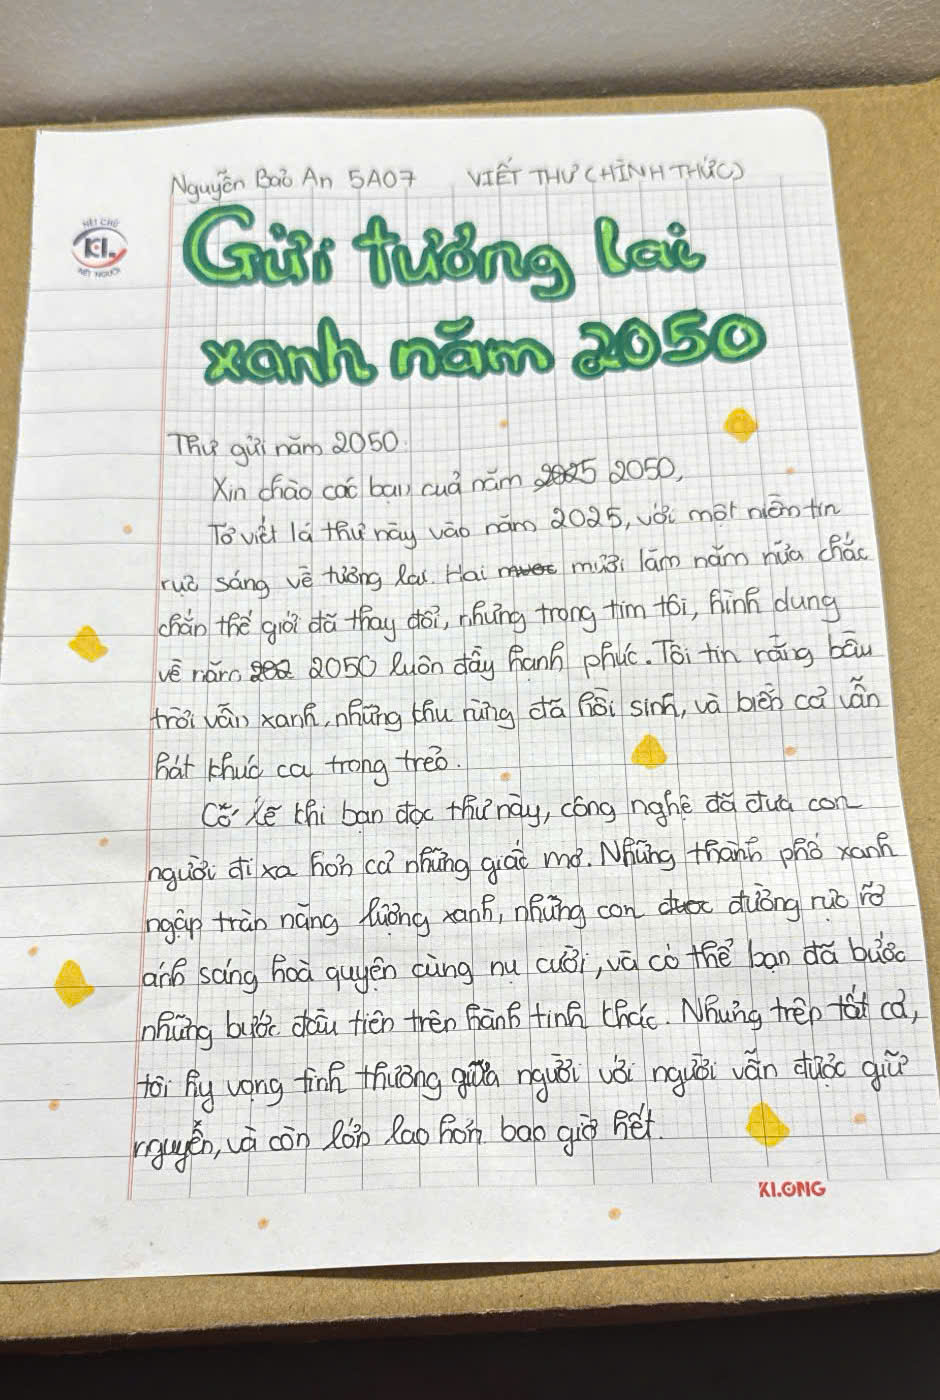 Nguyễn Bảo An 5A07 VIẾT THƯ (HÌNH THỨC)
NÉT CHỮ
KL
NẾT NGƯỜI
Gửi tương lai
xanh năm 2050
Thư gửi năm 2050.
Xin chào các bạn của năm 2025 2050,
Tớ viết lá thư này vào năm 2025, với một niềm tin
rực sáng về tương lai. Hai mươi lăm năm nữa chắc
chắn thế giới đã thay đổi, nhưng trong tim tôi, hình dung
về năm 2050 luôn đầy hạnh phúc. Tôi tin rằng bầu
trời vẫn xanh, những khu rừng đã hồi sinh, và biển cả vẫn
hát khúc ca trong trẻo.
Có lẽ khi bạn đọc thư này, công nghệ đã đưa con
người đi xa hơn cả những giấc mơ. Những thành phố xanh
ngập tràn năng lượng xanh, những con đường rực rỡ
ánh sáng hoà quyện cùng nụ cười, và có thể bạn đã bước
những bước đầu tiên trên hành tinh khác. Nhưng trên tất cả,
tôi hy vọng tình thương giữa người với người vẫn được giữ
nguyên, và còn lớn lao hơn bao giờ hết.
KLONG